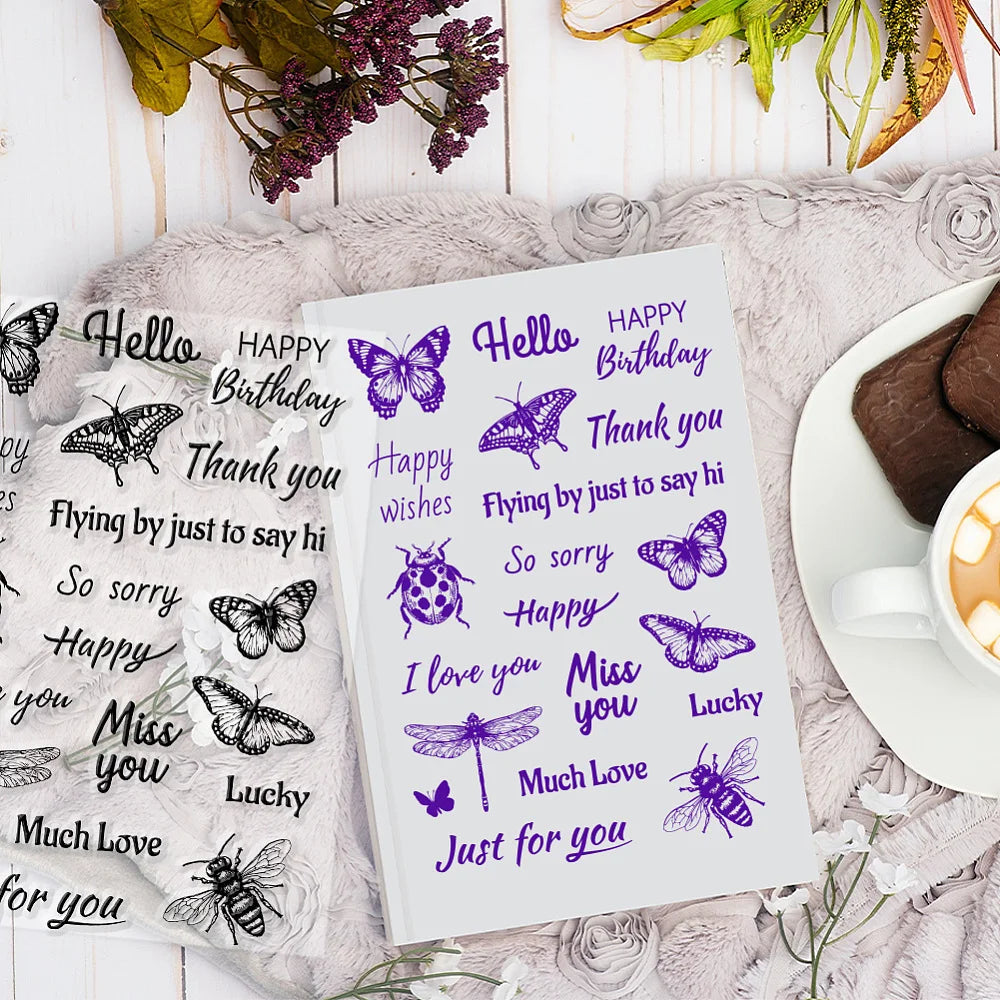 Hello
HAPPY
Birthday
Thank you
Flying by just to say hi
So sorry
Happy
you
Miss
you
Lucky
Much Love
for you
Hello
HAPPY
Birthday
Thank you
Happy
wishes
Flying by just to say hi
So sorry
Happy
I love you
Miss
you
Lucky
Much Love
Just for you